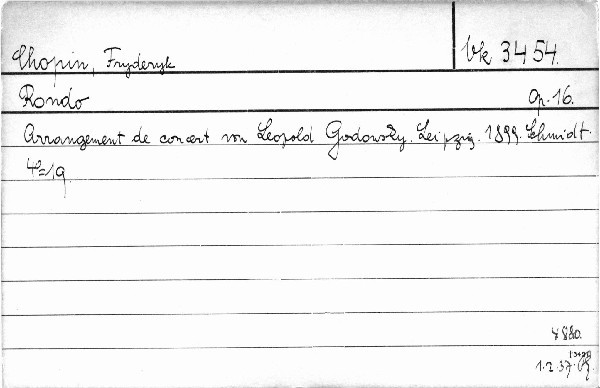 Chopin, Fryderyk
Vk 3454.
Rondo op. 16.
Arrangement de concert von Leopold Godowsky. Leipzig. 1899. Schmidt.
4°=19
1.2.37.